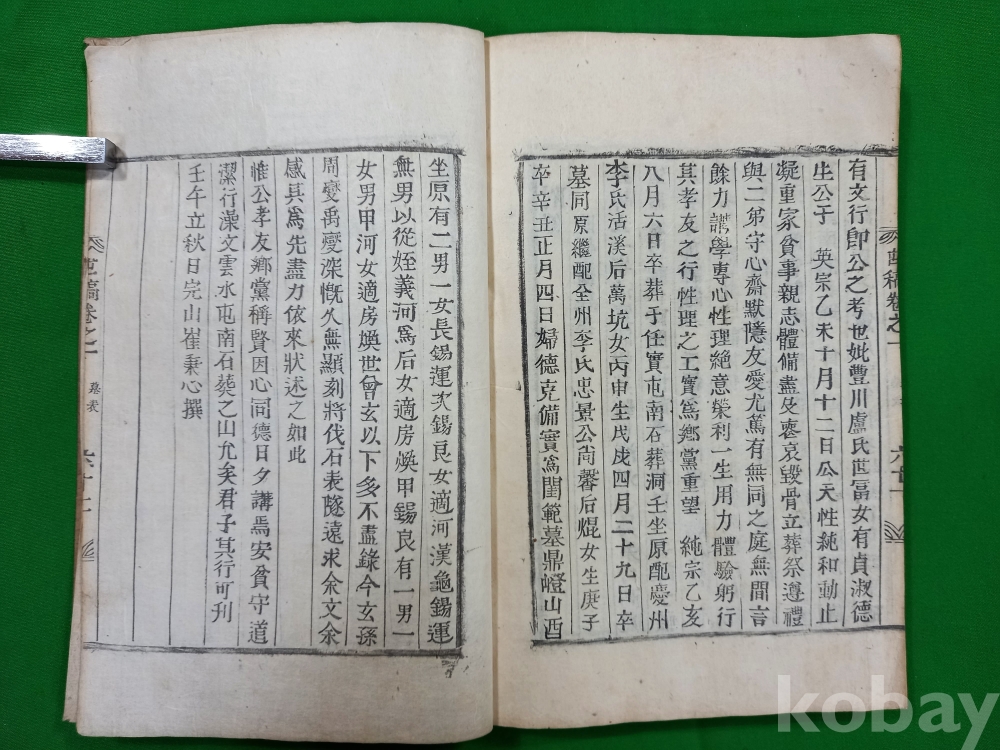 有文行卽公之考也妣豐川盧氏世冨女有貞淑德
生公于 英宗乙未十月十二日公天性純和動止
凝重家貧事親志體備盡及喪哀毀骨立葬祭遵禮
與二弟守心齋默隱友愛尤篤有無同之庭無間言
餘力講學專心性理絶意榮利一生用力體驗躬行
其孝友之行性理之工實爲鄉黨重望 純宗乙亥
八月六日卒葬于任實屯南石葬洞壬坐原配慶州
李氏活溪后萬坑女丙申生戊戌四月二十九日卒
墓同原繼配全州李氏忠景公尚馨后焜女生庚子
卒辛丑正月四日婦德克備實爲閨範墓鼎嶝山酉
坐原有二男一女長錫運次錫良女適河漢龜錫運
無男以從姪義河爲后女適房煥甲錫良有一男一
女男甲河女適房煥世曾玄以下多不盡錄今玄孫
周燮禹燮深慨久無顯刻將伐石表隧遠求余文余
感其爲先盡力依來狀述之如此
惟公孝友鄉黨稱賢因心同德日夕講焉安貧守道
潔行澡文雲水屯南石葬之山允矣君子其行可刊
壬午立秋日完山崔秉心撰
世稿卷之一
墓表
kobay